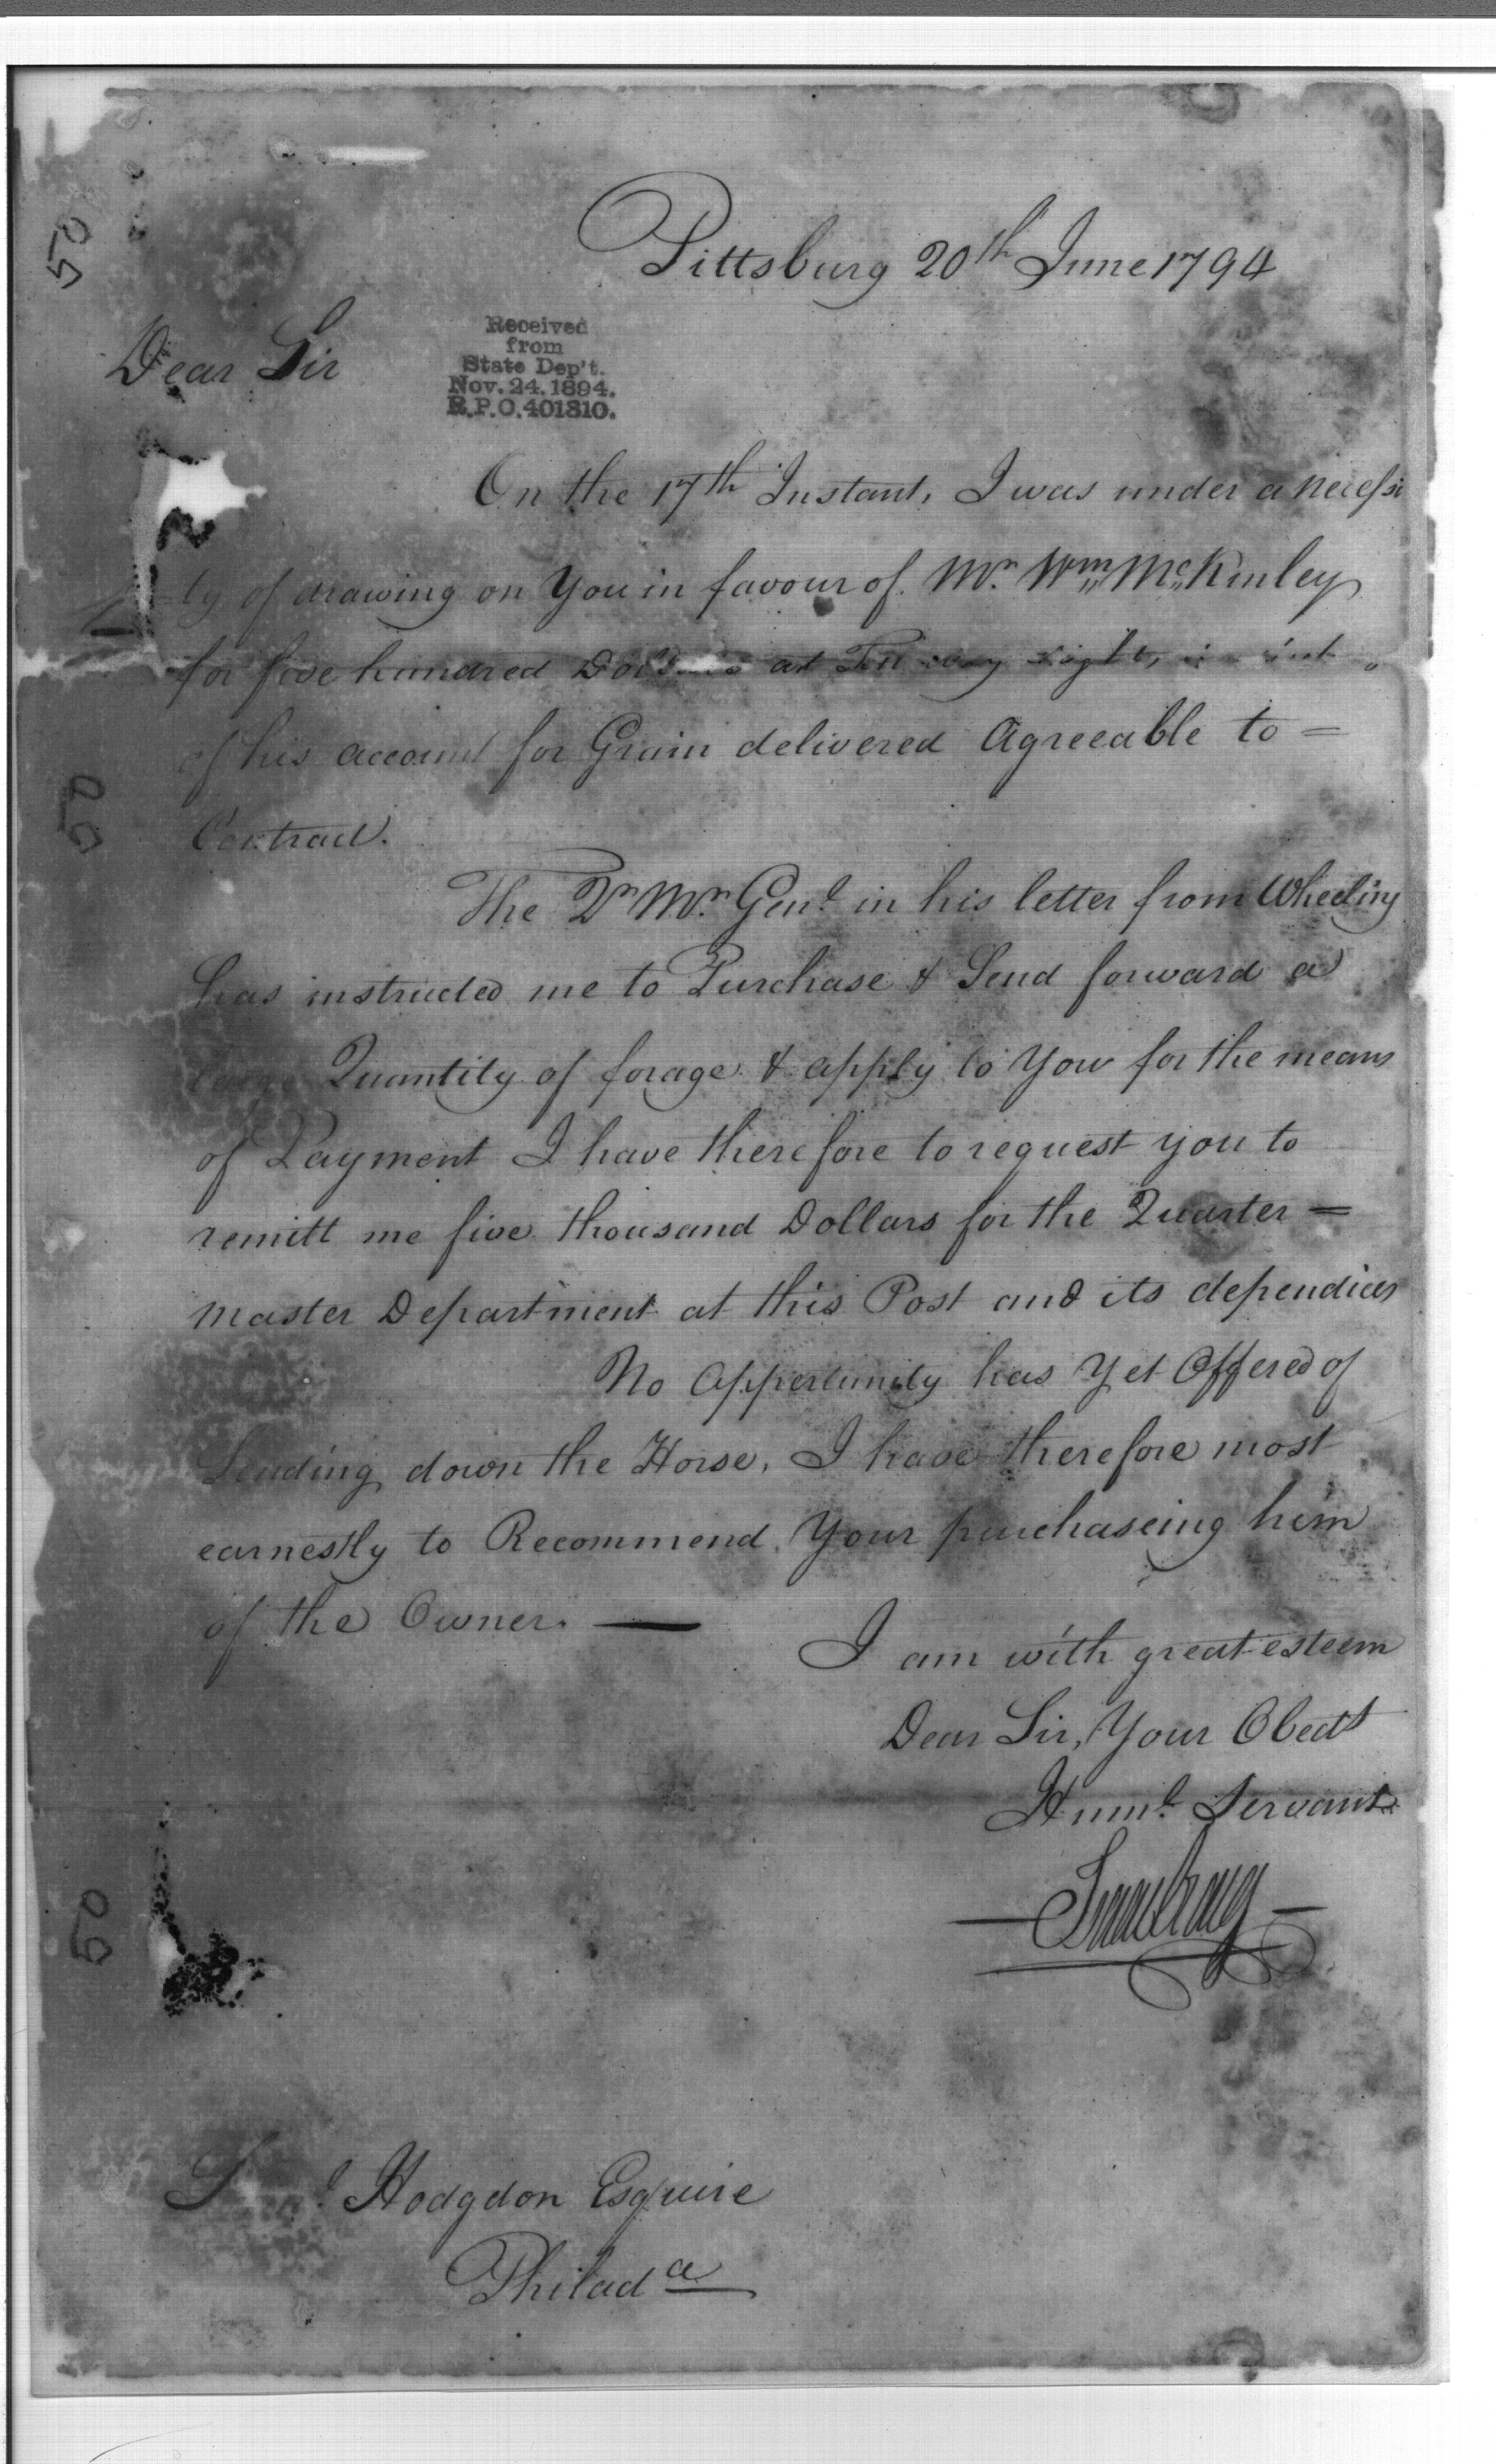 50
Pittsburg 20th June 1794
Dear Sir
Received
from
State Dep't.
Nov. 24. 1894.
R.P.O. 401310.
On the 17th Instant, I was under a necessi
=ty of drawing on You in favour of Mr. Wm McKinley
for five hundred at Ten day sight, in
of his account for Grain delivered Agreeable to =
Contract.
The Qr Mr. Genl. in his letter from Wheeling
has instructed me to Purchase & Send forward a
large Quantity of forage & apply to You for the means
of Payment I have therefore to request you to
remitt me five thousand Dollars for the Quarter =
master Department at this Post and its dependices
No Oppertunity has Yet Offered of
Sending down the Horse, I have therefore most
earnestly to Recommend Your purchaseing him
of the Owner. —
I am with great esteem
Dear Sir, Your Obedt
Humbl. Servant
Isaac Craig
50
50
Saml. Hodgdon Esquire
Philada